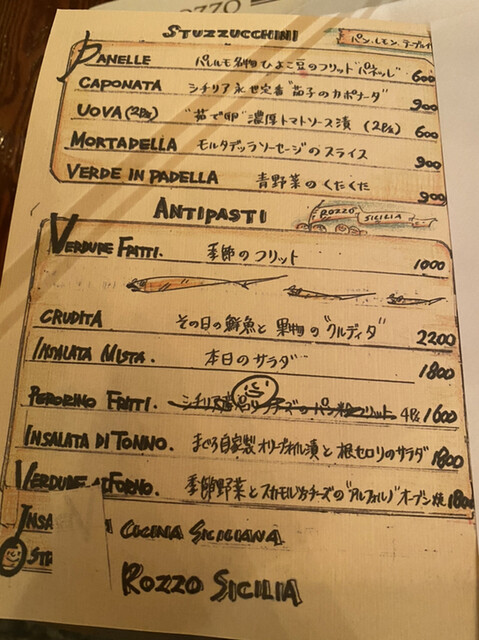 ROZZO
STUZZUCCHINI
パン.レモン.テーブル
PANELLE パレルモ名物 ひよこ豆のフリット"パネッレ" 600
CAPONATA シチリア永世定番"茄子のカポナータ" 900
UOVA (2Pz) "茹で卵"濃厚トマトソース漬 (2Pz) 600
MORTADELLA モルタデッラソーセージのスライス 900
VERDE IN PADELLA 青野菜のくたくた 900
ANTIPASTI
ROZZO SICILIA
VERDURE FRITTI. 季節のフリット 1000
CRUDITA その日の鮮魚と果物の"クルディタ" 2200
INSALATA MISTA. 本日のサラダ 1800
PERORINO FRITTI. シチリア産ペコリーノチーズのパン粉フリット 4Pz 1600
INSALATA DI TONNO. まぐろ自家製オリーブオイル漬と根セロリのサラダ 1800
VERDURE FORNO. 季節野菜とスカモルツァチーズの"アルフォルノ"オーブン焼 1800
INSA
STR
CUCINA SICILIANA
ROZZO SICILIA